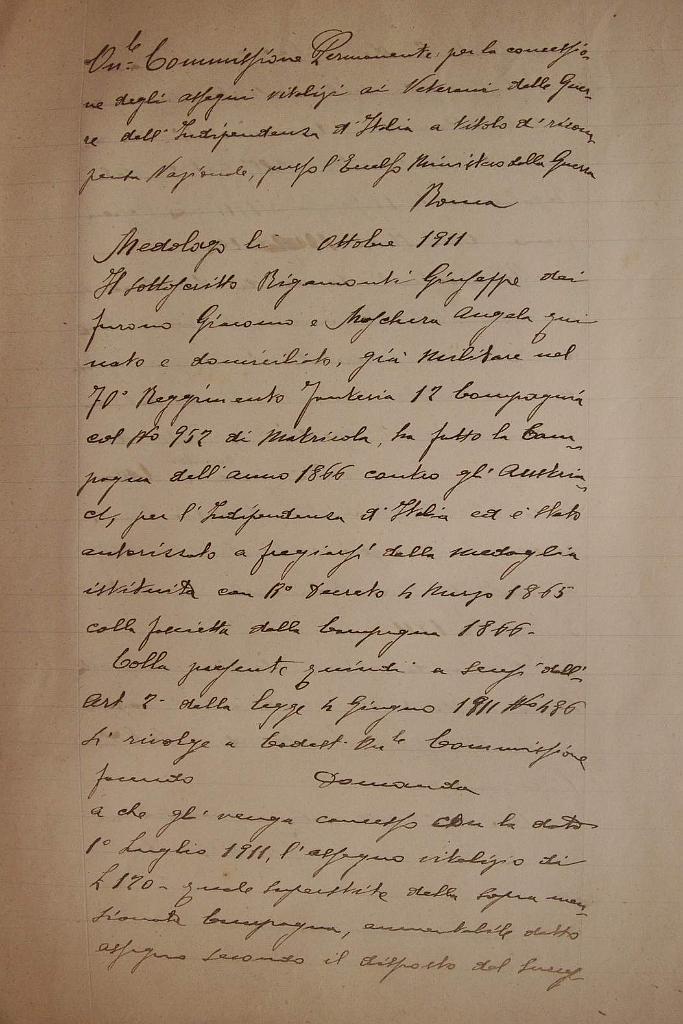 On.le Commissione Permanente per la concessio-
ne degli assegni vitalizi ai Veterani delle Guer-
re dell'Indipendenza d'Italia a titolo di ricom
pensa Nazionale, presso l'Eccelso Ministero della Guerra
Roma
Medolago li Ottobre 1911
Il sottoscritto Rigamonti Giuseppe dei
furono Giacomo e Angela qui
nato e domiciliato, già militare nel
70° Reggimento Fanteria 12 Compagnia
col No 952 di Matricola, ha fatto la Cam-
pagna dell'anno 1866 contro gli Austria-
ci, per l'Indipendenza d'Italia ed è stato
autorizzato a fregiarsi della medaglia
istituita con R° Decreto 4 Marzo 1865
colla fascietta della Campagna 1866-
Colla presente quindi a sensi dell'
Art 2- della legge 4 Giugno 1911 No 486
si rivolge a Codest. On.le Commissione
facendo Domanda
a che gli venga concesso con la data
1° Luglio 1911, l'assegno vitalizio di
L 120- quale superstite della sopra men-
zionata Campagna, aumentabile detto
assegno secondo il disposto del